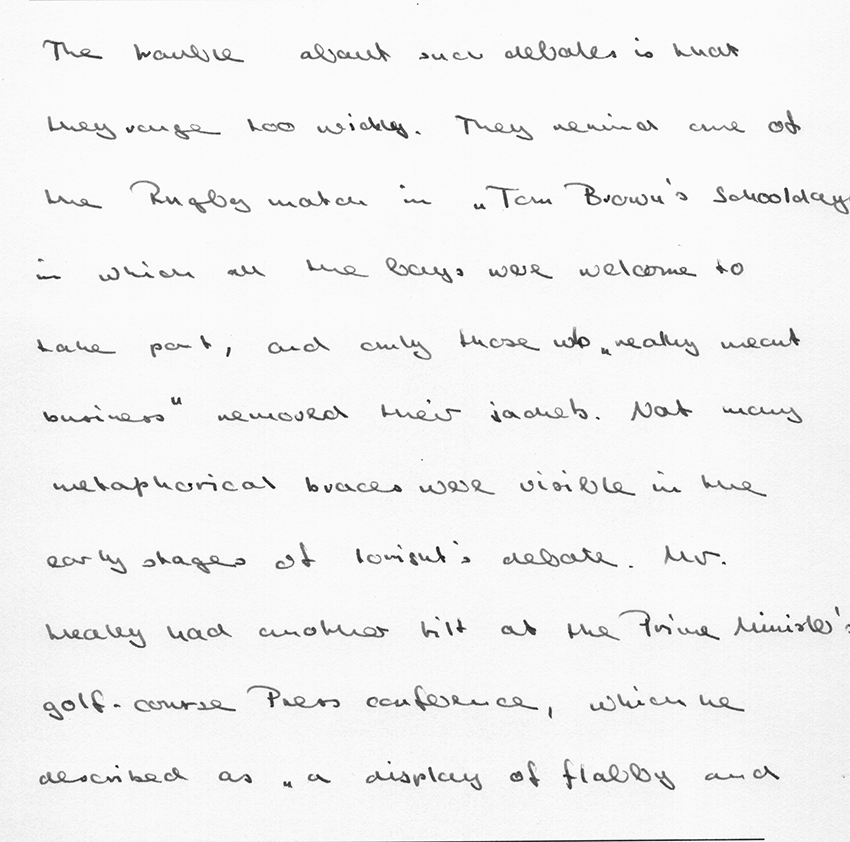 The trouble about such debates is that
they range too widely. They remind one of
the Rugby match in „Tom Brown's Schooldays
in which all the boys were welcome to
take part, and only those who „really meant
business" removed their jackets. Not many
metaphorical braces were visible in the
early stages of tonight's debate. Mr.
Healey had another tilt at the Prime Minister's
golf-course Press conference, which he
described as „a display of flabby and